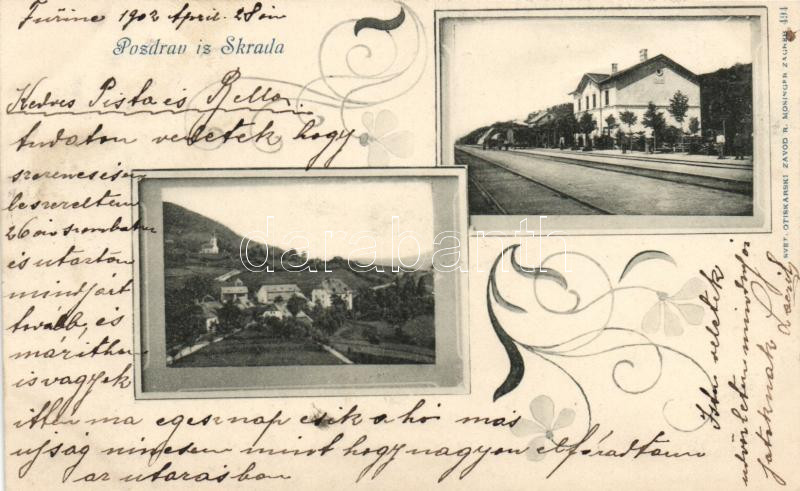 Fužine 1902 April. 28án
Pozdrav iz Skrada
Kedves Pista és Bella.
tudatom veletek hogy
szerencsésen
leszereltem
26án szombaton
és utaztam
mindjárt
tovább, és
már itthon
is vagyok
itten ma egesznap esik a hó más
ujság nincsen mint hogy nagyon elfáradtam
az utazásban
Isten veletek
üdvözletem mindnyájatoknak
SVET. OTISKARSKI ZAVOD R. MOSINGER ZAGREB 494
darabanth.com